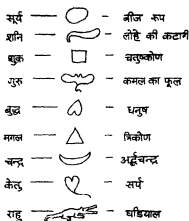 सूर्य — बीज रूप
शनि — लोहे की कटारी
शुक्र — चतुष्कोण
गुरु — कमल का फूल
बुद्ध — धनुष
मंगल — त्रिकोण
चन्द्र — अर्द्धचन्द्र
केतु — सर्प
राहु — घडियाल